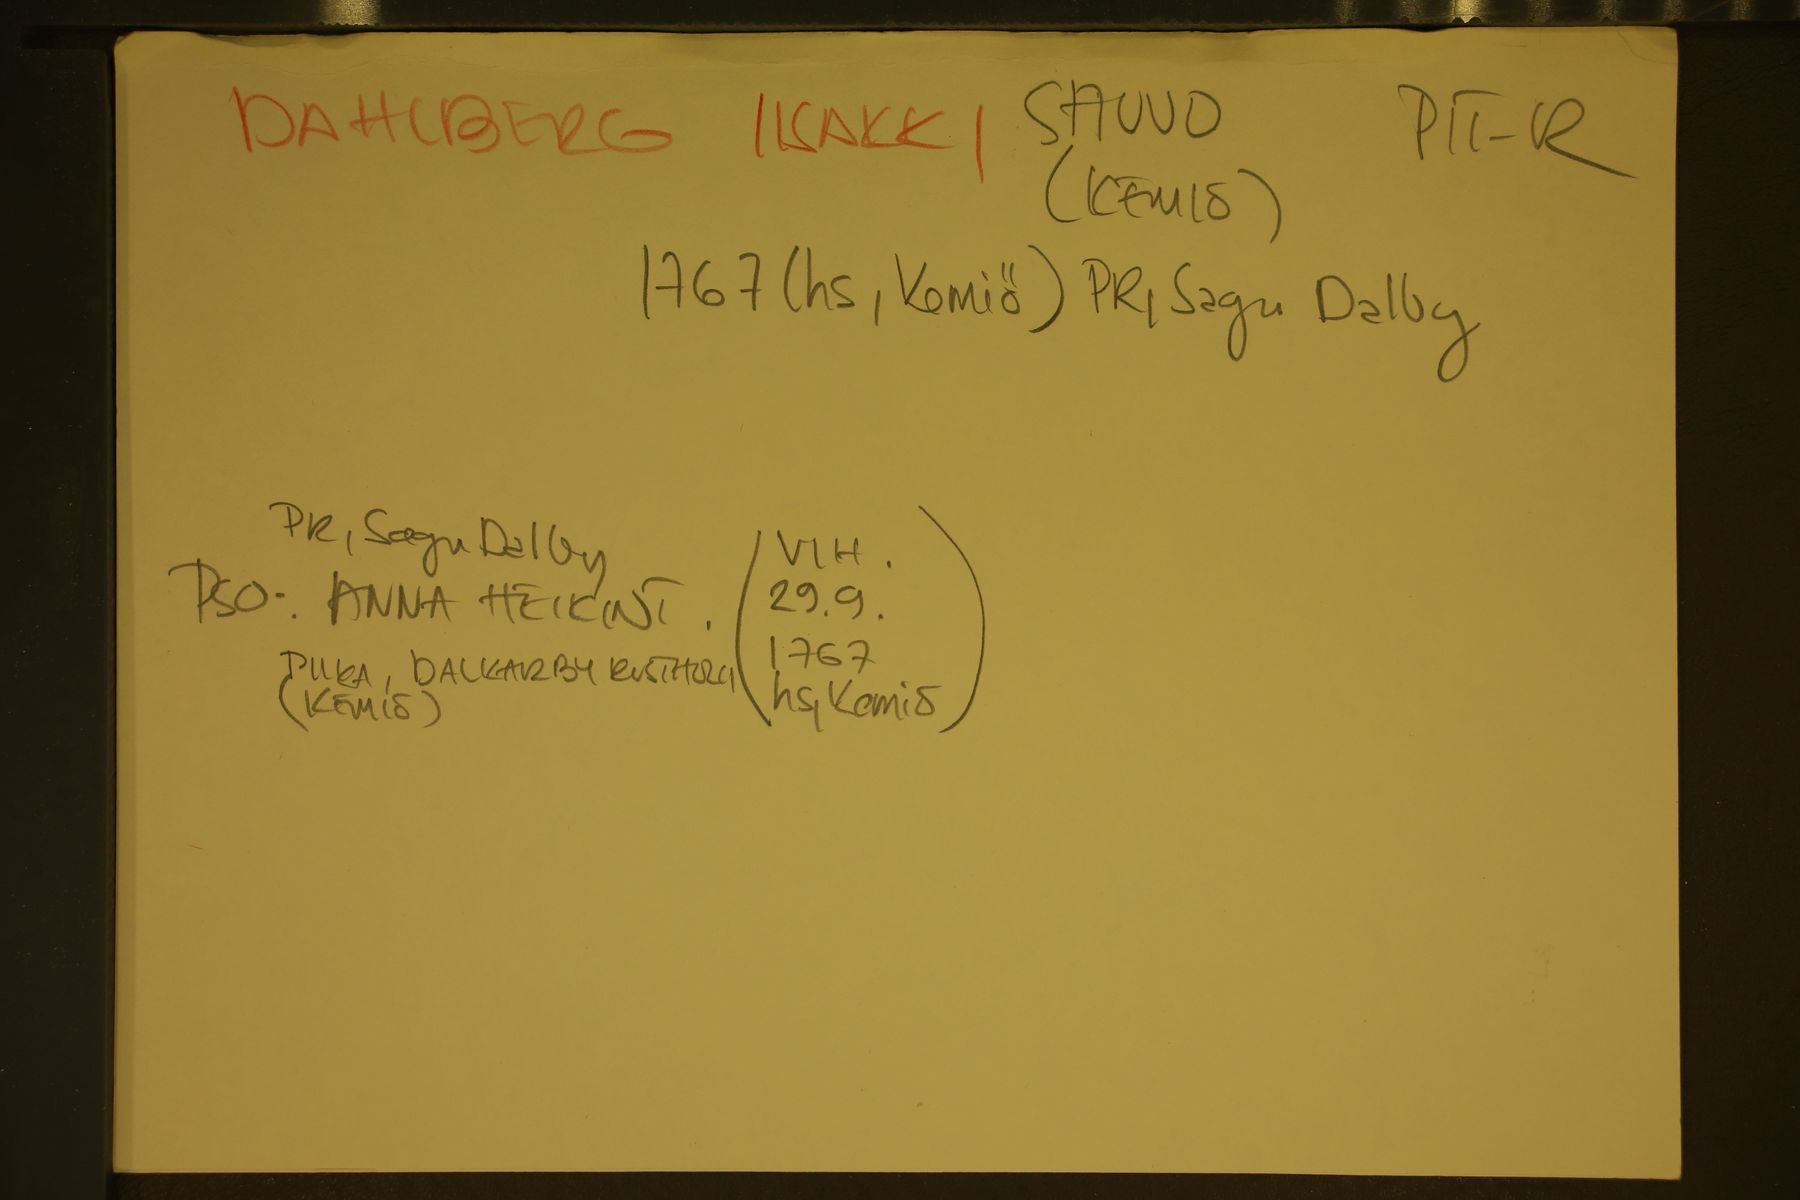 DAHLBERG IISAKKI SAUVO PIT-R
(KEMIÖ)
1767 (hs, Kemiö) PR, Sagu Dalby
PR, Sagu Dalby
PSO: ANNA HEIKINT.
PIIKA, DALKARBY RUSTHOLLI
(KEMIÖ)
(VIH.
29.9.
1767
hs, Kemiö)